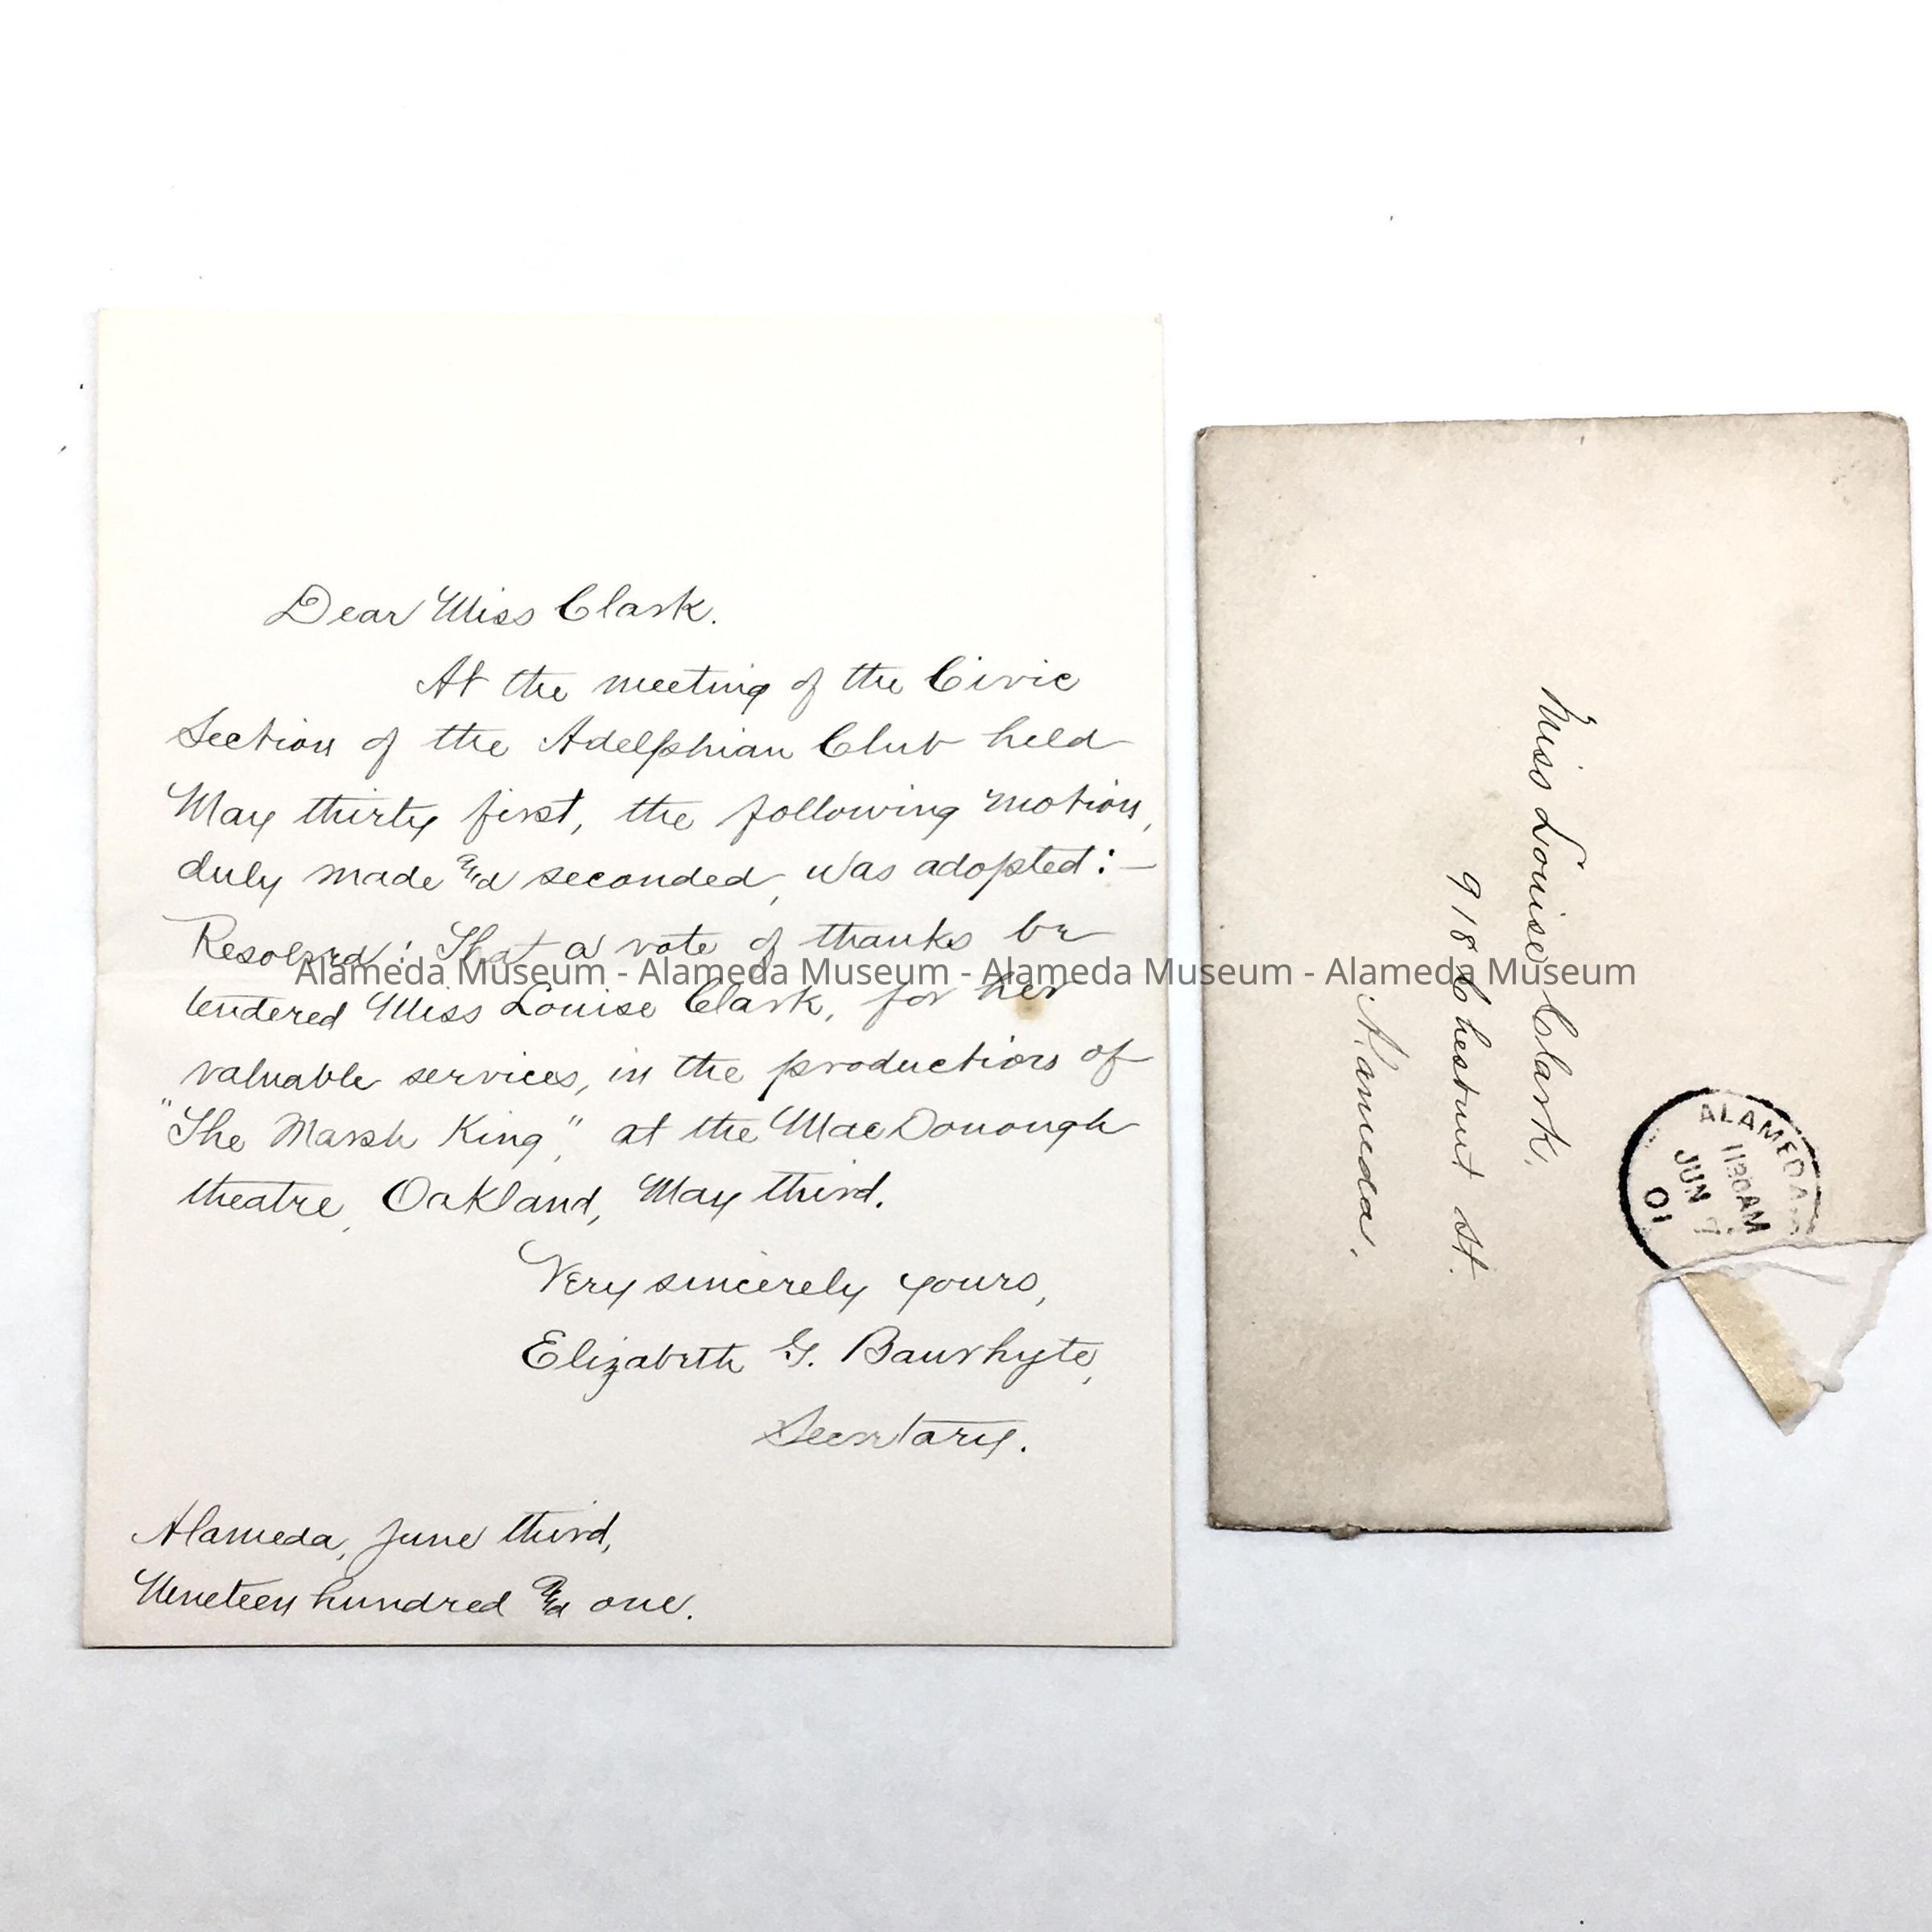 Dear Miss Clark.
At the meeting of the Civic
Section of the Adelphian Club held
May thirty first, the following motion,
duly made and seconded, was adopted:—
Resolved: That a vote of thanks be
tendered Miss Louise Clark, for her
valuable services, in the production of
"The Marsh King," at the MacDonough
theatre, Oakland, May third.
Very sincerely yours,
Elizabeth G.
Secretary.
Alameda, June third,
Nineteen hundred and one.
Miss Louise Clark,
918 Chestnut St.
Alameda.
ALAMEDA
1130AM
JUN 7
01
Alameda Museum - Alameda Museum - Alameda Museum - Alameda Museum